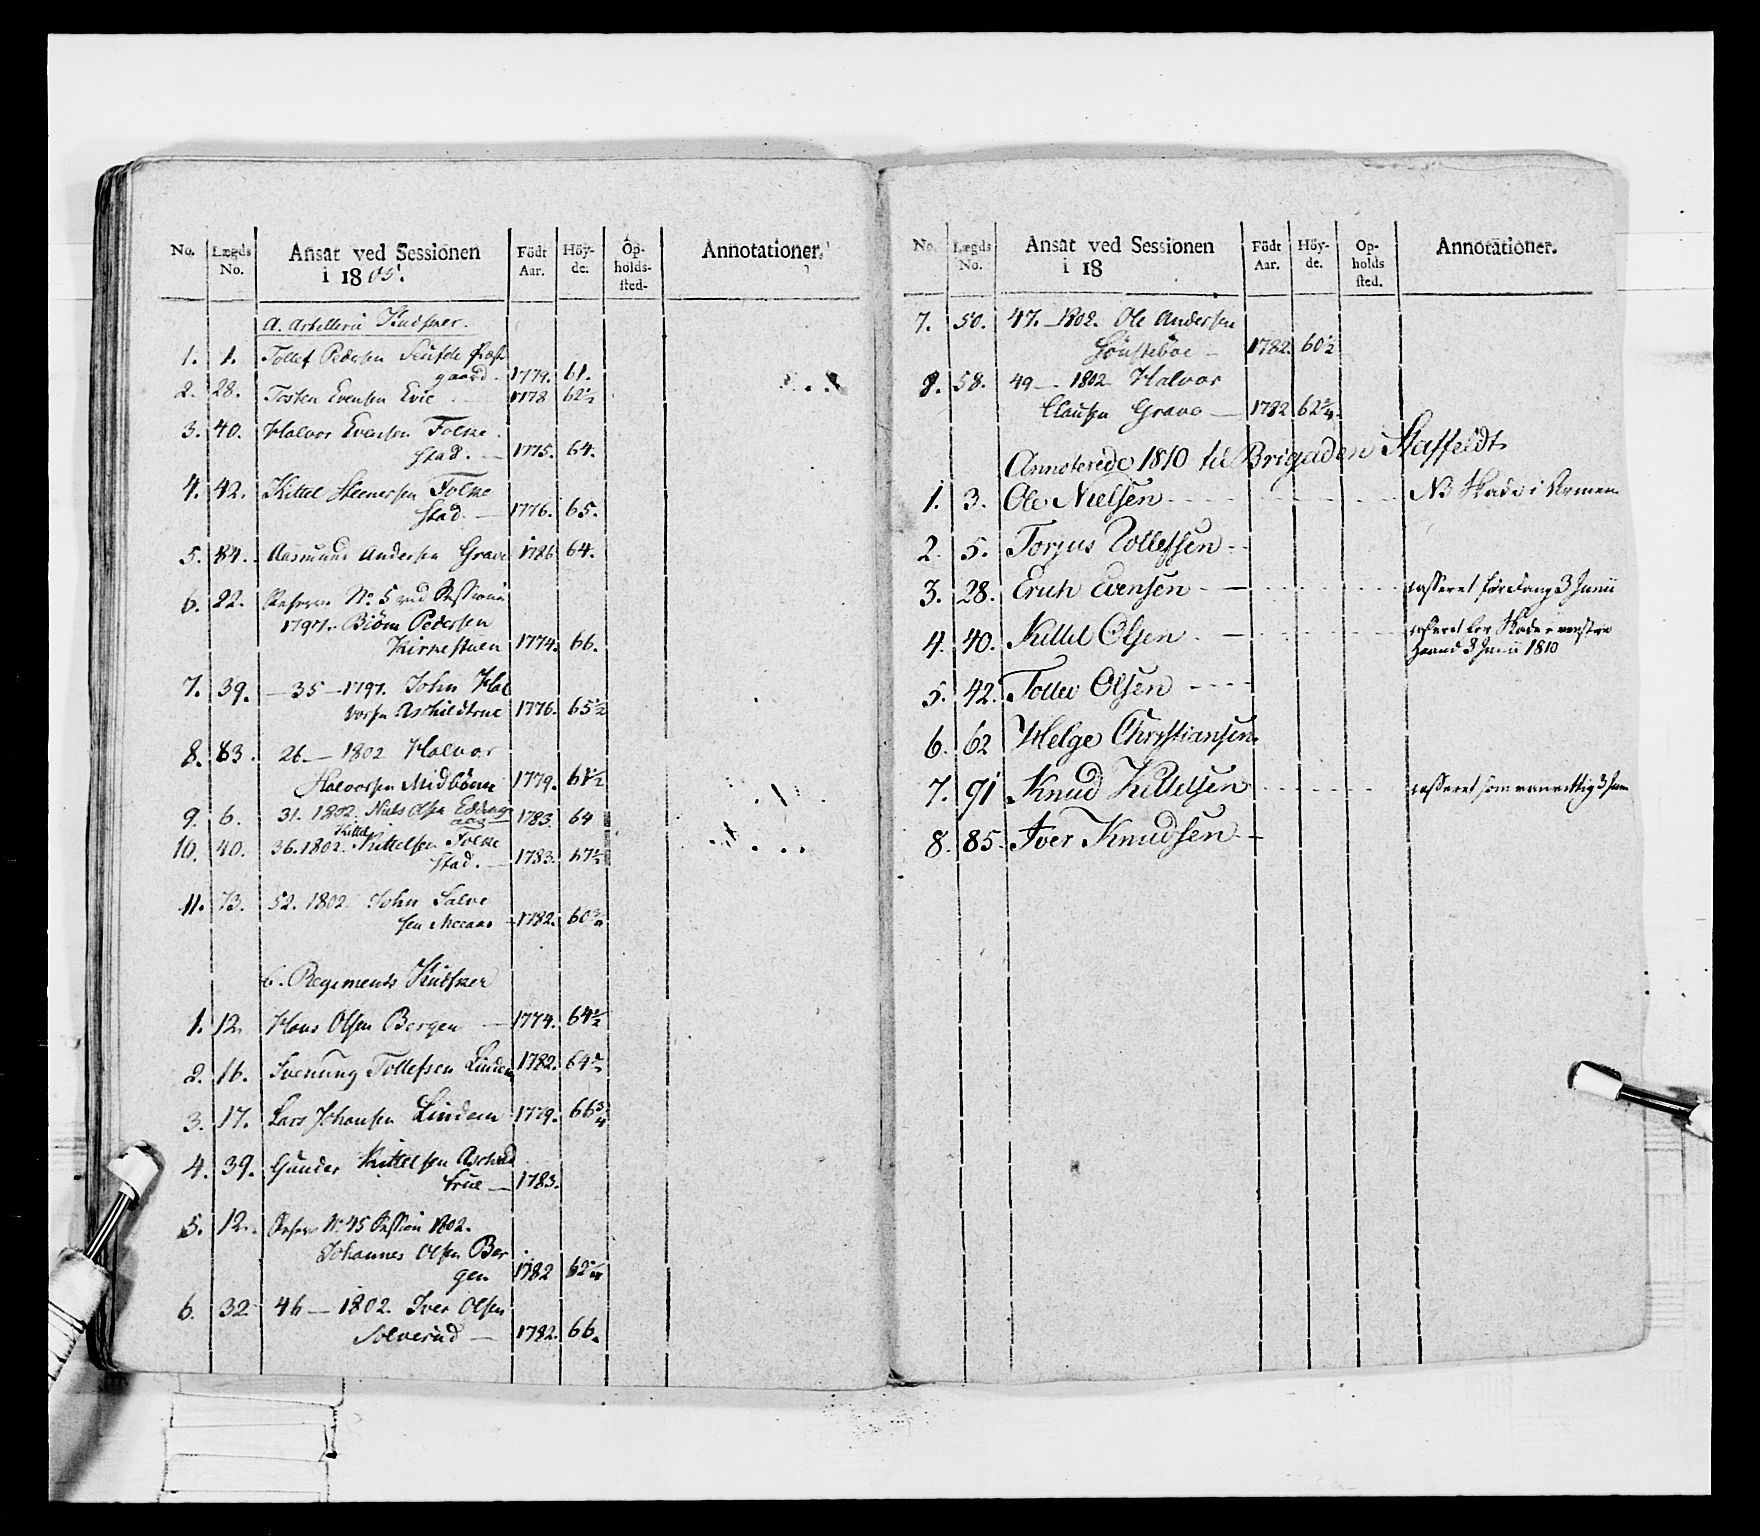 No. Lægds No. Ansat ved Sessionen i 1805. Födt Aar. Höy-de. Op-holds-sted. Annotationer.
a. Artillerie Kudsker.
1. 1. Tollef Pedersen
gaard. 1779. 61.
2. 28. Tosten Evensen Evie 1778 62½
3. 40. Halvor Evensen Folke
stad. — 1775. 64.
4. 42. Kittel Steenersen Folke
stad. — 1776. 65.
5. 84. Aasmund Andersen Grave 1786 64.
6. 22. Reserve No. 5 ved Session
1797. Biörn Pedersen
Kirkestuen 1774. 66.
7. 39. — 35 — 1797. John Hal
vorsen Aschildtrue 1776. 65½
8. 83. 26 — 1802 Halvor
Halvorsen Midböene 1779. 61½
9. 6. 31. 1802. Niels Olsen 1783. 64
10. 40. 36. 1802. Kittel Kittelsen Folke
stad. — 1783. 67½
11. 73. 52. 1802. John Salve
sen — 1782. 60¾
b. Regiments Kudsker
1. 12. Hans Olsen Bergen — 1774. 64½
2. 16. Svenung Tollefsen Lindem 1782. 64½
3. 17. Lars Johansen Lindem 1779. 66¾
4. 39. Gunder Kittelsen Aschild
true — 1783.
5. 12. Reserve No. 45 Session 1802.
Johannes Olsen Ber
gen 1782 62¼
6. 32 46 — 1802. Iver Olsen
Solverud — 1782. 66.
No. Lægds No. Ansat ved Sessionen i 18 Födt Aar. Höy-de. Op-holds sted. Annotationer.
7. 50. 47. — 1802. Ole Andersen
Gönsteböe — 1782. 60½
8. 58. 49 — 1802 Halvor
Clausen Grave — 1782 62¾.
Annoterede 1810 til Brigaden Staffeldt
1. 3. Ole Nielsen NB Skade i Armen
2. 5. Torjus Tollefsen
3. 28. Erich Evensen — casseret 3 Junii
4. 40. Kittel Olsen — casseret for Skade i venstre
Haand 3 Junii 1810
5. 42. Tollev Olsen
6. 62 Helge Christiansen
7. 91 Knud Kittelsen casseret som vanvittig 3 Juni
8. 85. Iver Knudsen —